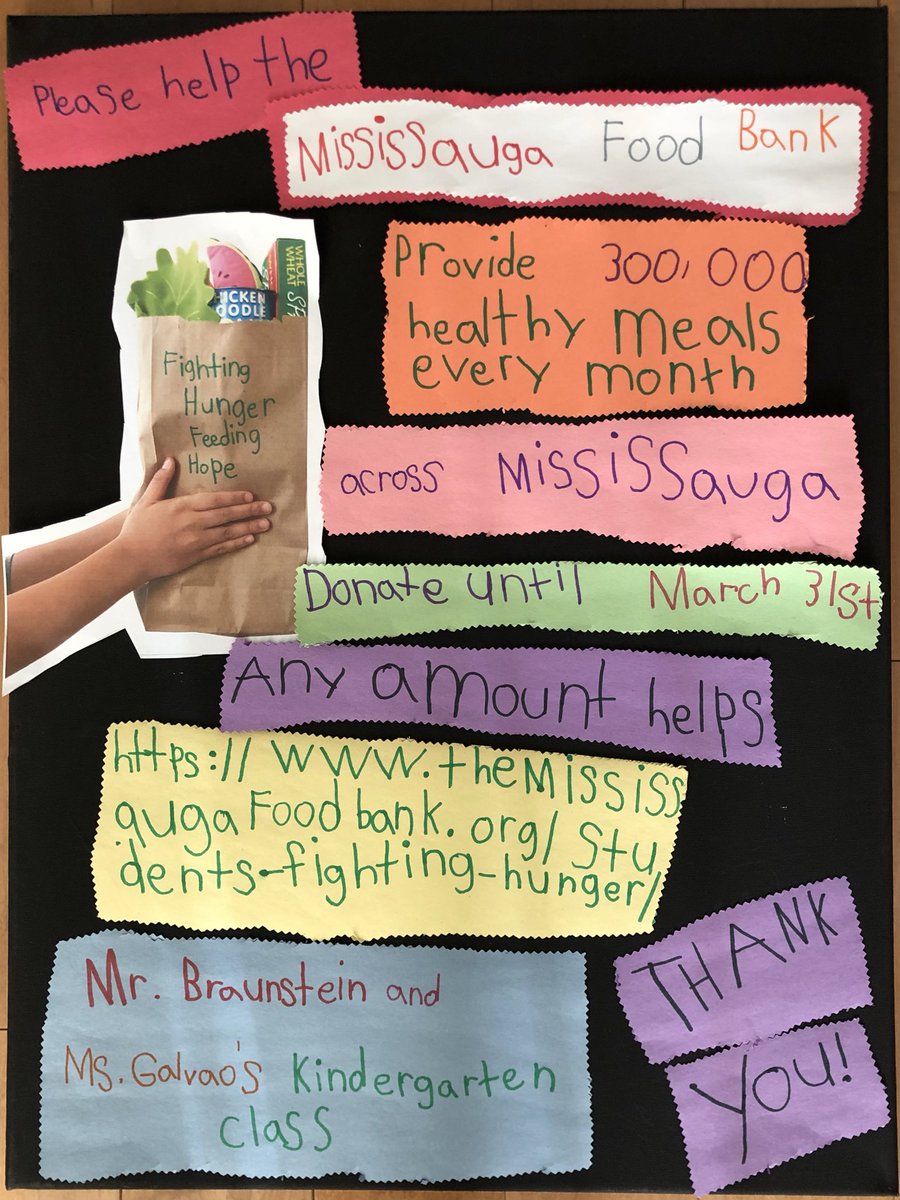 Please help the
Mississauga Food Bank
WHOLE
WHEAT
Provide 300,000
healthy meals
every month
Fighting
Hunger
Feeding
Hope
across Mississauga
Donate until March 31st
Any amount helps
https://www.theMississ
auga Food bank.org/Stu
dents-fighting-hunger/
THANK
YOU!
Mr. Braunstein and
Ms. Galvao's Kindergarten
class